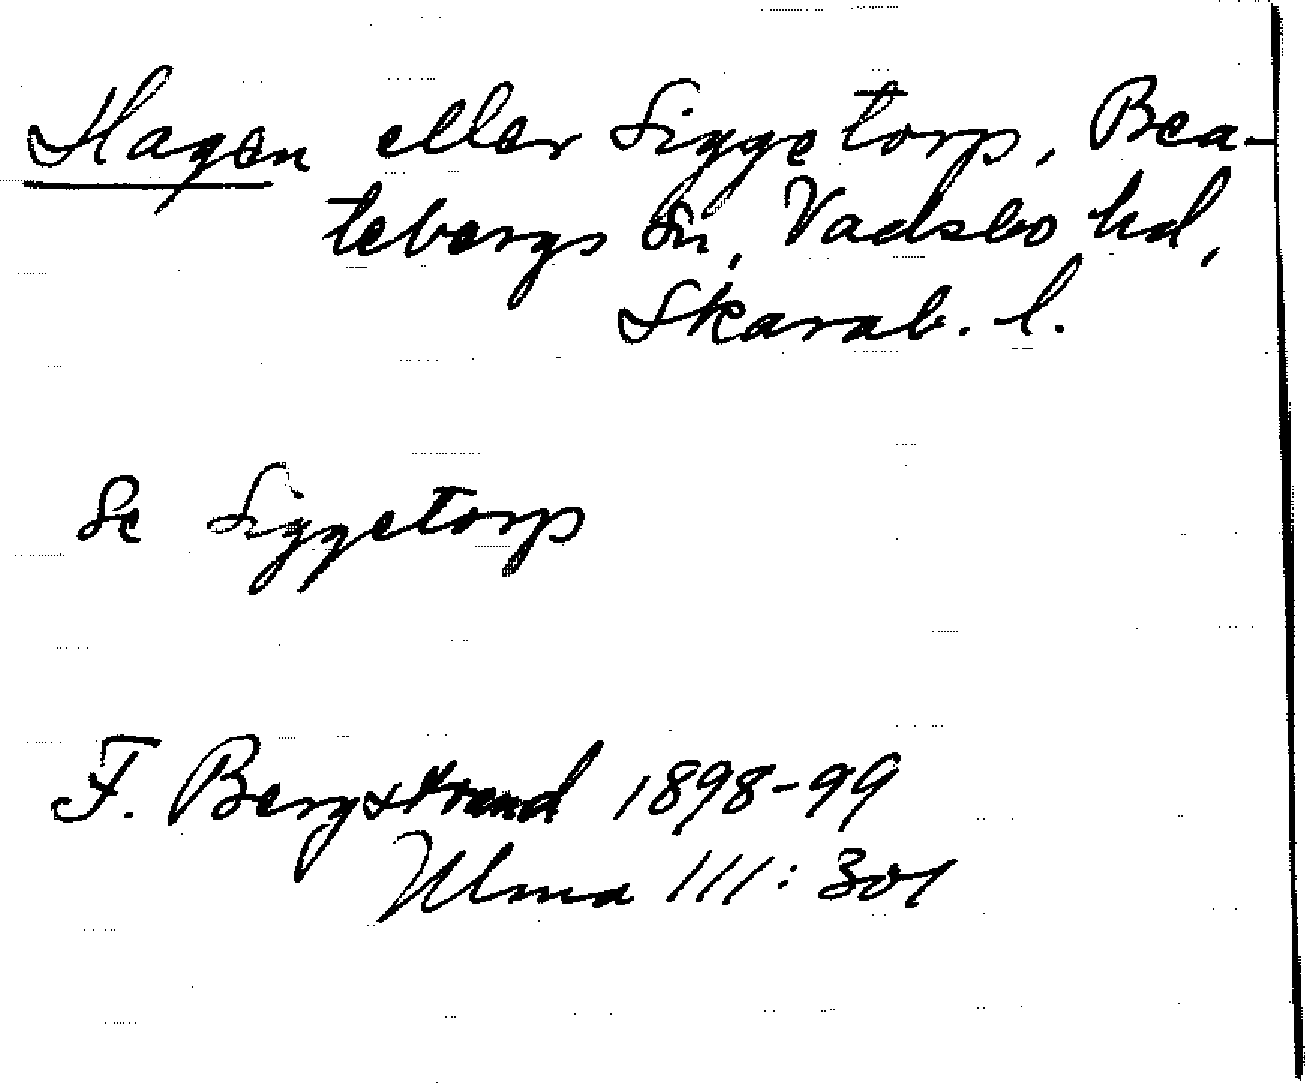 Hagen eller Siggetorp, Bea-
tebergs Sn, Vadsbo hd,
Skarab. l.
Se Siggetorp
F. Bergstrand 1898-99
Ulma 111:301